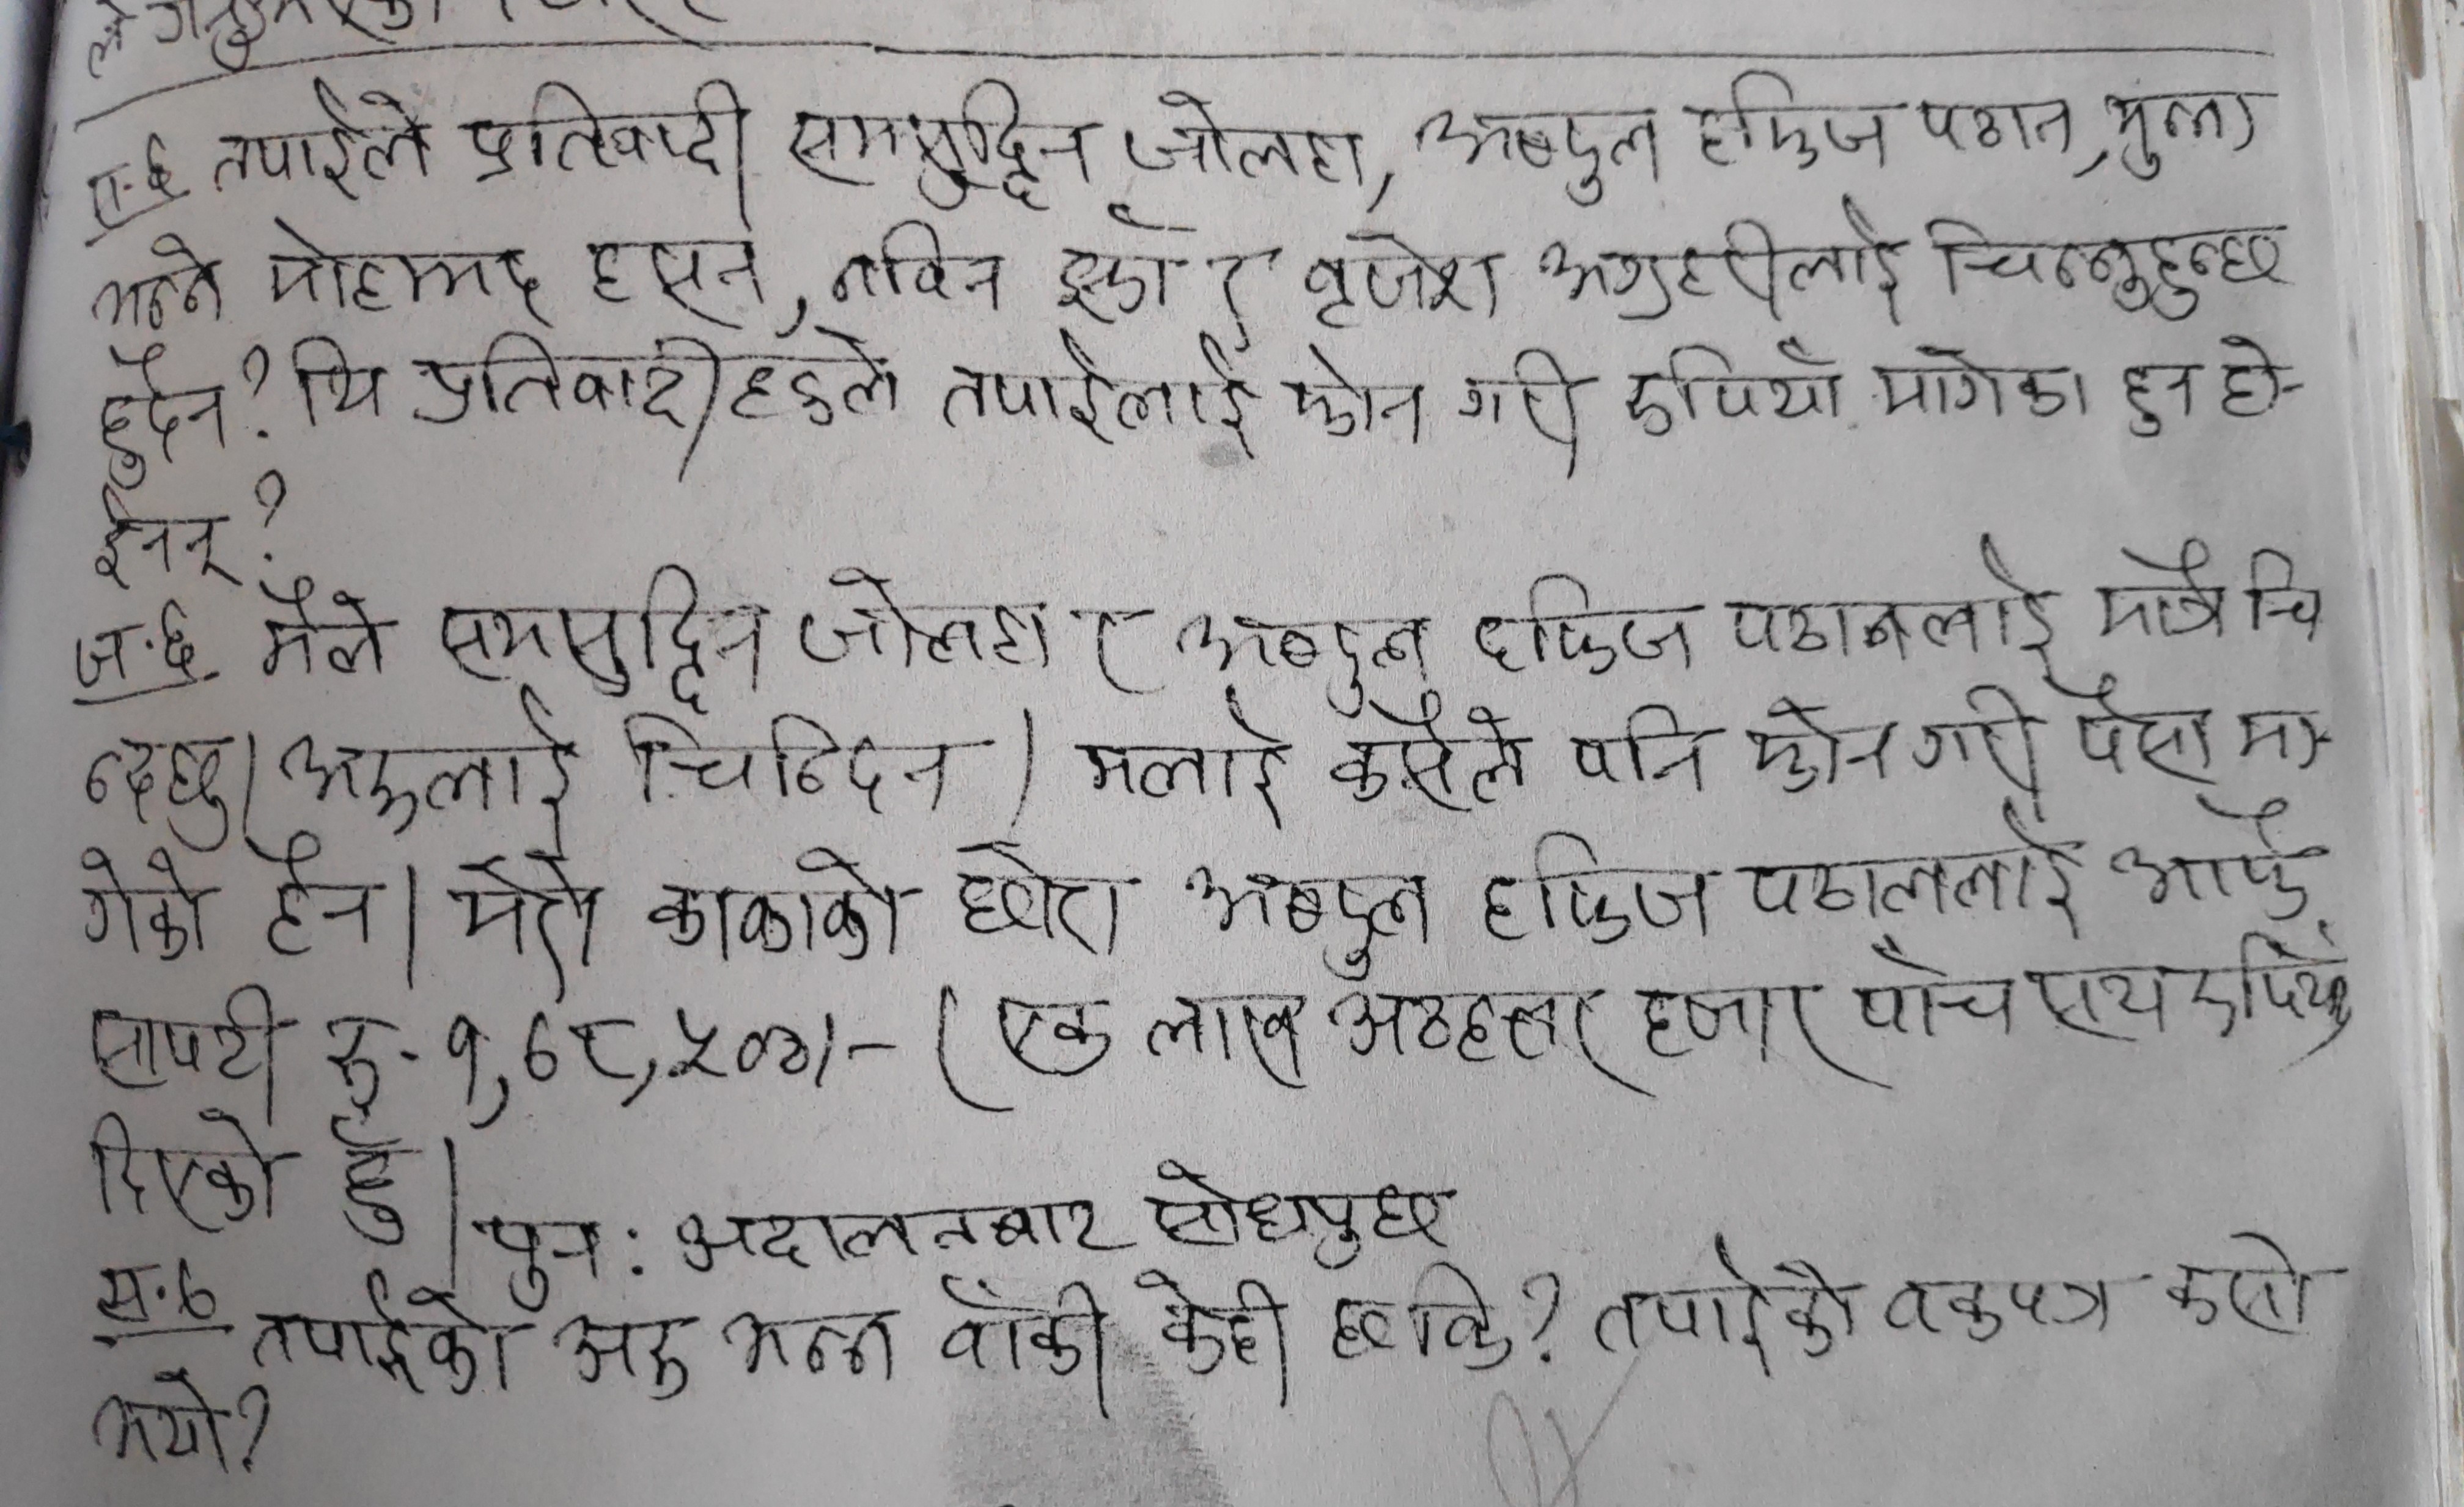 स.६ तपाईले प्रतिवादी समसुद्दिन जोलहा, अब्दुल हफिज पठान, मुन्ना
भन्ने मोहम्मद हसन, नविन झा र वृजेश अग्रहरीलाई चिन्नुहुन्छ
हुदैन? यि प्रतिवादीहरुले तपाईलाई फोन गरी रुपियाँ मागेका हुन हो-
ईनन्?
ज.६ मैले समसुद्दिन जोलहा र अब्दुल हफिज पठानलाई मात्रै चि
न्दछु। अरुलाई चिन्दिन। मलाई कसैले पनि फोन गरी पैसा मा-
गेको हैन। मेरो काकाको छोरा अब्दुल हफिज पठानलाई आफै
सापटी रु. १,७८,५००/- (एक लाख अठहत्तर हजार पाँच सय रुपियाँ)
दिएको हुँ।
पुन: अदालतबाट सोधपुछ
स.७ तपाईको अरु भन्न बाँकी केही छ कि? तपाईको वकपत्र कसो
भयो?